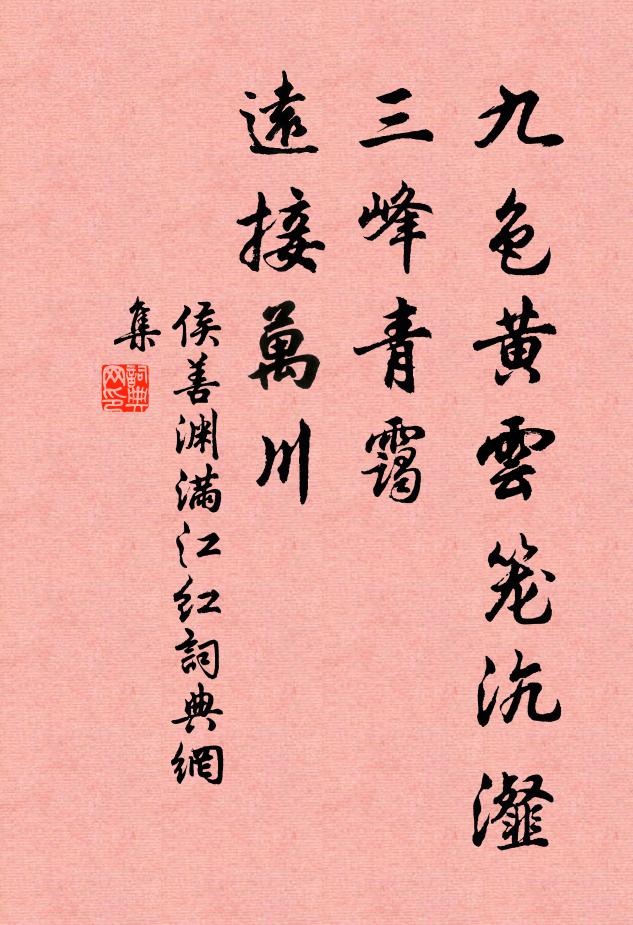 九色黄雲笼沆瀣
三峰青靄
遠接萬川
侯善渊满江红詞典網
集
詞典网印